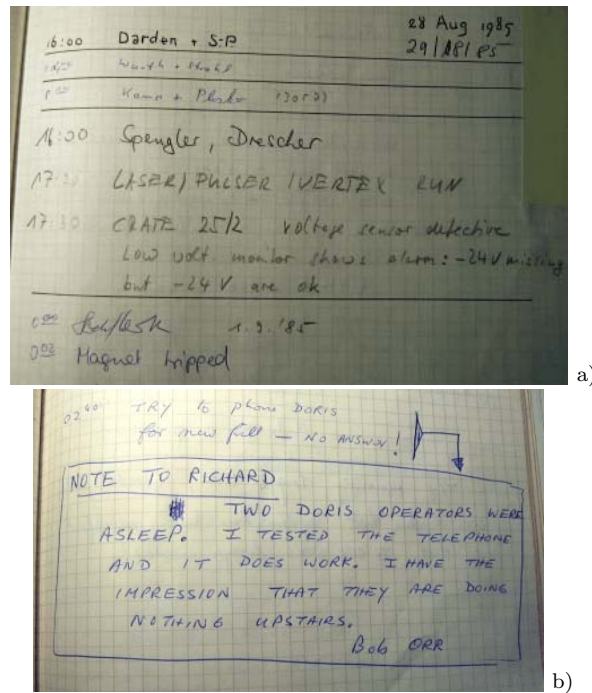 28 Aug 1985
16:00 Darden + S.P
29/08/85
Kamp +
16:00 Spengler, Drescher
LASER/PULSER/VERTEX RUN
17:30 CRATE 25/2 voltage sensor defective
Low volt. monitor shows alarm: -24V missing
but -24 V are ok
0:00 1.9.'85
0:02 Magnet tripped
a)
02:40 TRY to phone DORIS
for new fill — NO ANSWER!
NOTE TO RICHARD
TWO DORIS OPERATORS WERE
ASLEEP. I TESTED THE TELEPHONE
AND IT DOES WORK. I HAVE THE
IMPRESSION THAT THEY ARE DOING
NOTHING UPSTAIRS.
Bob ORR
b)